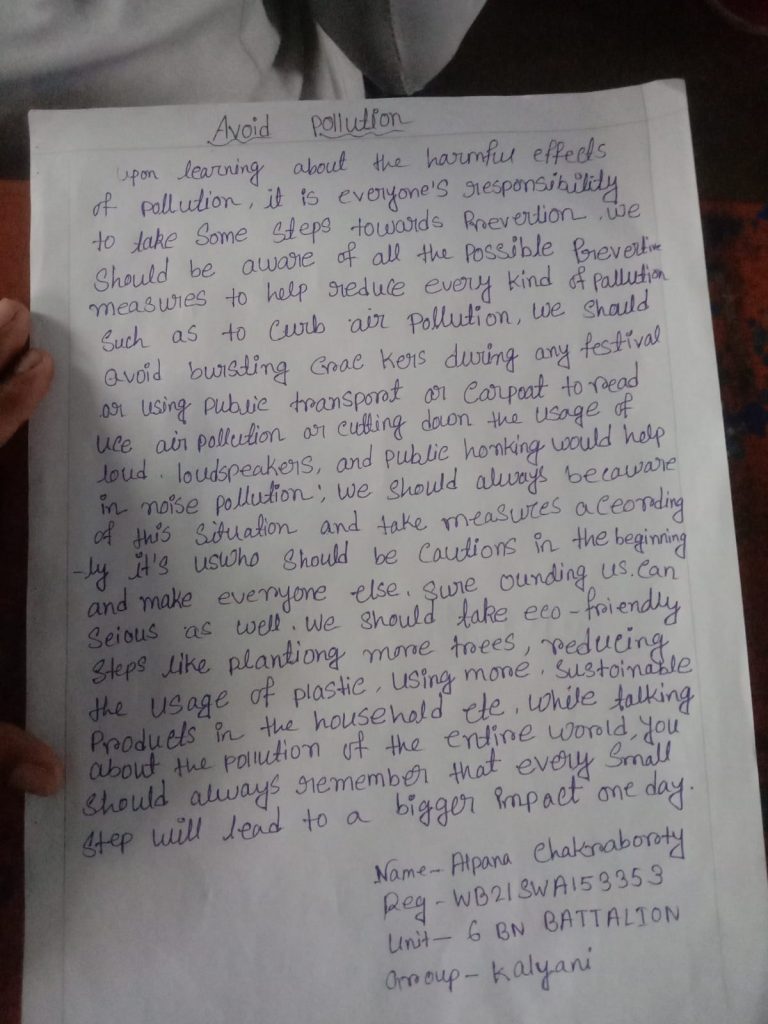 Avoid Pollution
Upon learning about the harmful effects
of pollution, it is everyone's responsibility
to take Some Steps towards Prevertion. we
Should be aware of all the Possible Prevertive
measures to help reduce every kind of pallution
Such as to Curb air Pollution, we should
avoid bursting Crac kers during any festival
or using Public transport or Carpoat to read
uce air pollution or cutting down the usage of
loud. loudspeakers, and public honking would help
in noise pollution; we should always becaware
of this Situation and take measures according
-ly it's uswho Should be Cautions in the beginning
and make everyone else. Sure ounding us. Can
Seious as well. We should take eco-friendly
Steps like plantiong more trees, reducing
the usage of plastic, using more. Sustoinable
Products in the household etc. While talking
about the pollution of the entire world, you
should always remember that every Small
Step will lead to a bigger impact one day.
Name- Alpana Chakraboroty
Reg - WB21SWA153353
Unit- 6 BN BATTALION
Group - Kalyani